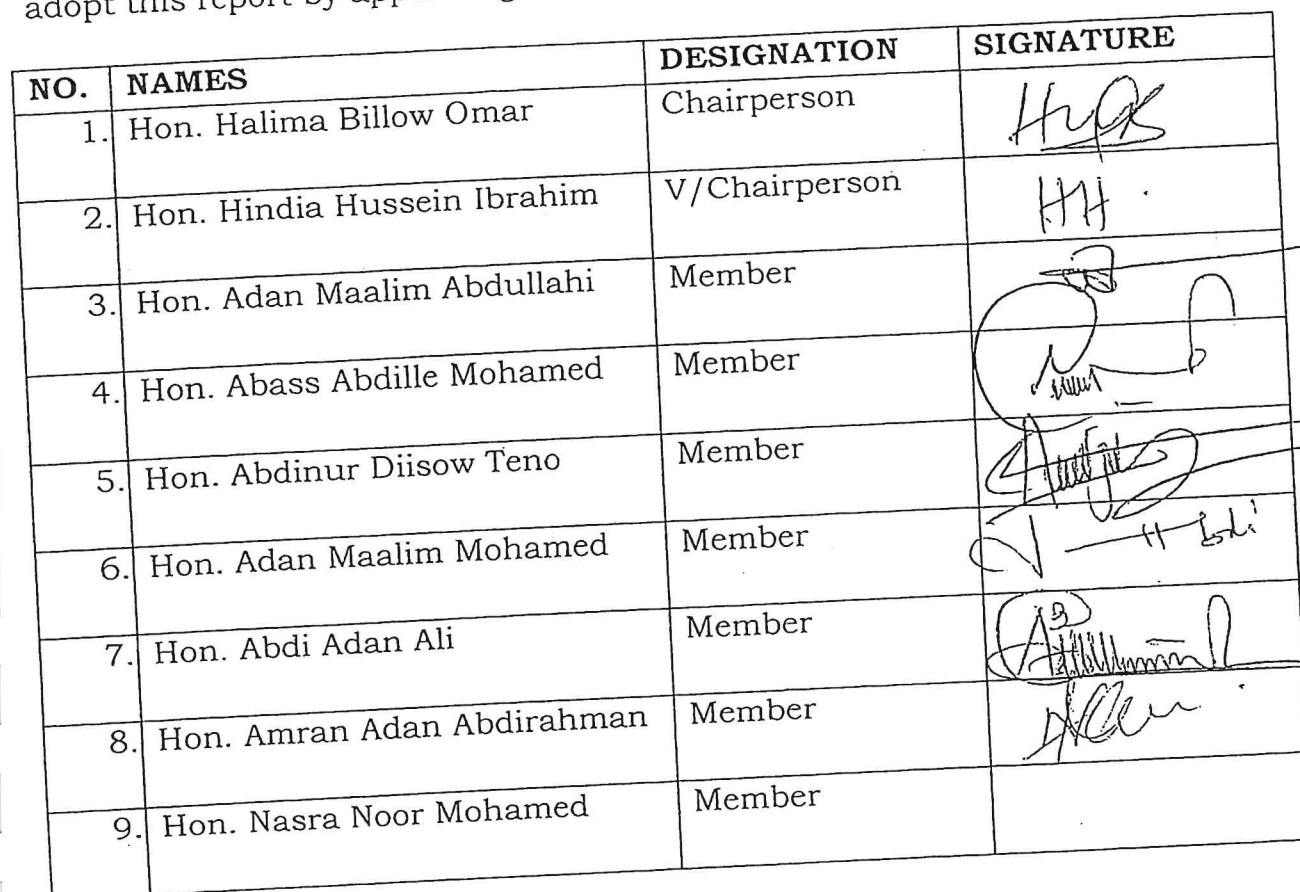 adopt this report by
NO. NAMES DESIGNATION SIGNATURE
1. Hon. Halima Billow Omar Chairperson
2. Hon. Hindia Hussein Ibrahim V/Chairperson HH
3. Hon. Adan Maalim Abdullahi Member
4. Hon. Abass Abdille Mohamed Member
5. Hon. Abdinur Diisow Teno Member
6. Hon. Adan Maalim Mohamed Member
7. Hon. Abdi Adan Ali Member
8. Hon. Amran Adan Abdirahman Member
9. Hon. Nasra Noor Mohamed Member